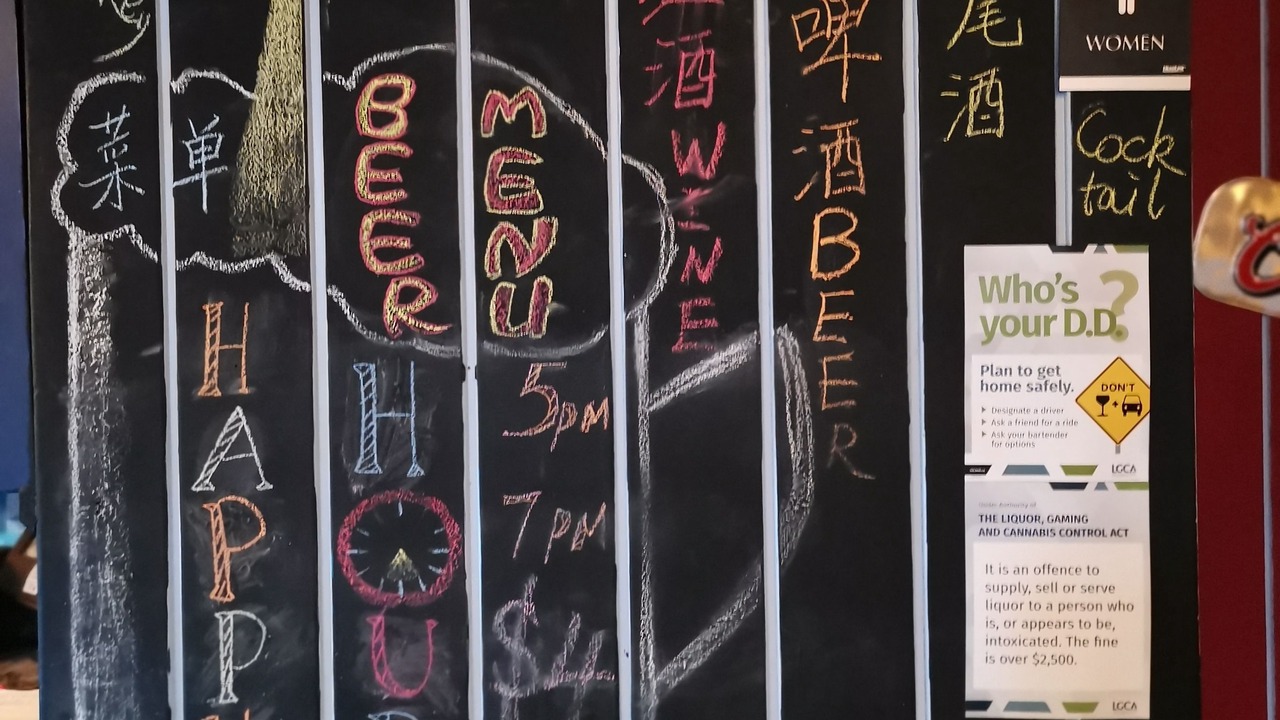 菜单
BEER
MENU
HAPP
H
U
5pm
7pm
$4
酒
WINE
啤酒
BEER
尾酒
Cock
tail
WOMEN
Who's
your D.D.?
Plan to get
home safely.
Designate a driver
Ask a friend for a ride
Ask your bartender
for options
DON'T
+
LGCA
THE LIQUOR, GAMING
AND CANNABIS CONTROL ACT
It is an offence to
supply, sell or serve
liquor to a person who
is, or appears to be,
intoxicated. The fine
is over $2,500.
LGCA